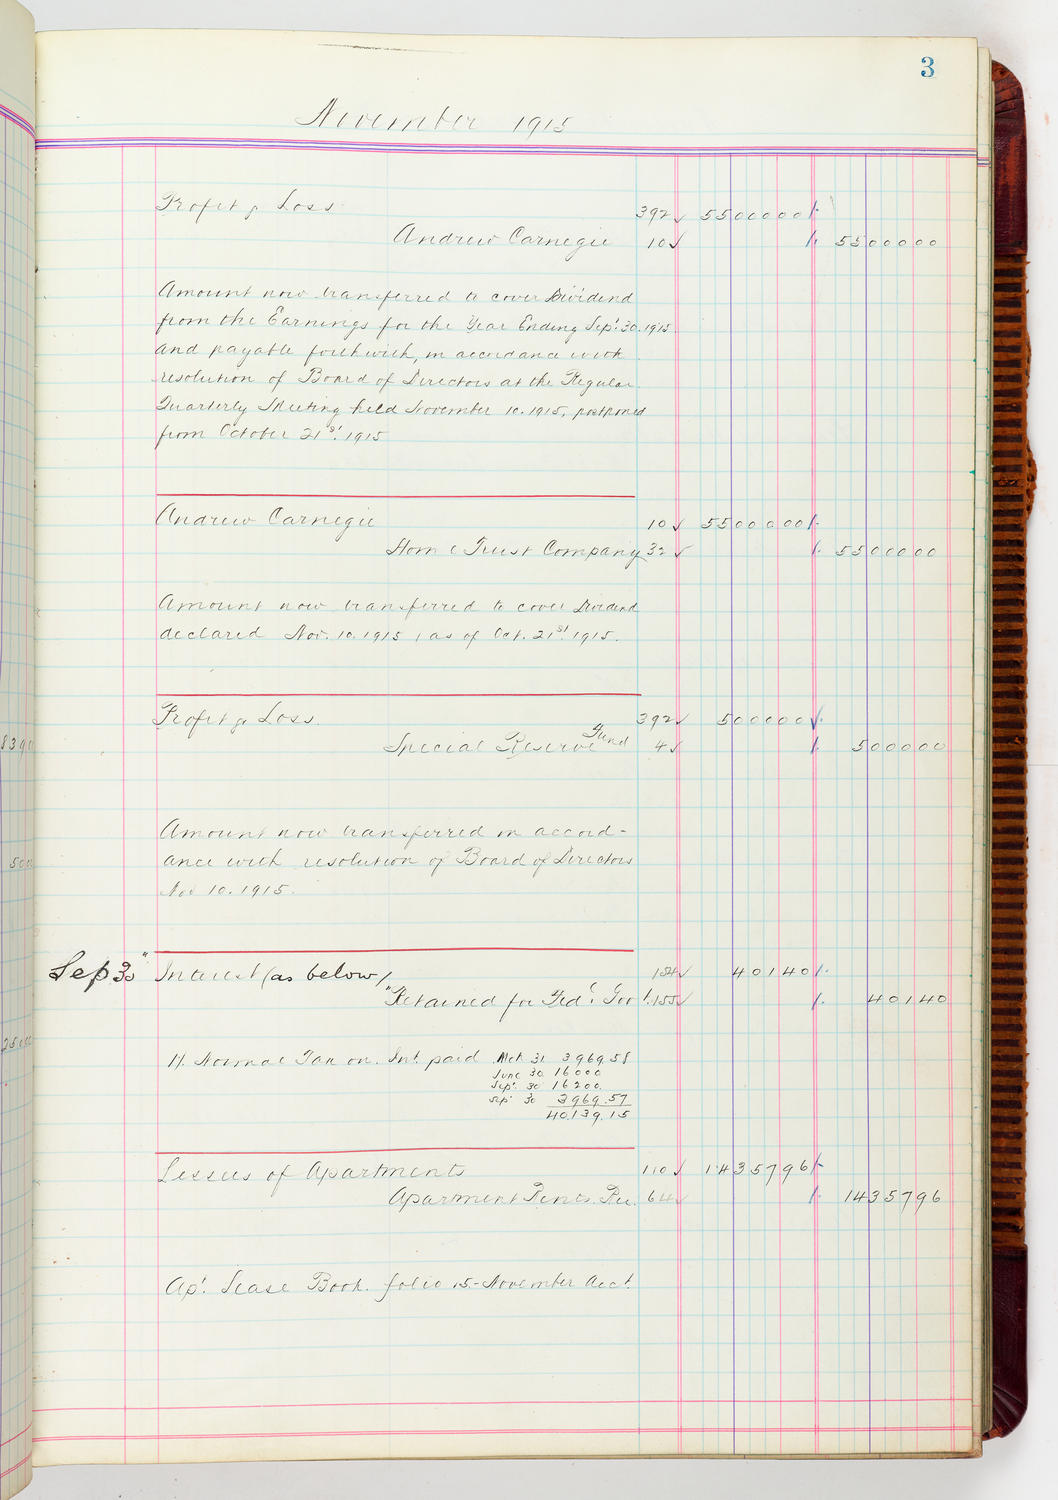 3
November 1915
Profit & Loss 392 ✓ 5500000
Andrew Carnegie 10 ✓ 5500000
Amount now transferred to cover Dividend
from the Earnings for the Year Ending Sept. 30. 1915
and payable forthwith, in accordance with
resolution of Board of Directors at the Regular
Quarterly Meeting held November 10. 1915, postponed
from October 21st. 1915
Andrew Carnegie 10 ✓ 5500000
Home Trust Company 32 ✓ 5500000
Amount now transferred to cover Dividend
declared Nov. 10. 1915, as of Oct. 21st. 1915.
Profit & Loss 392 ✓ 500000
Special Reserve Fund 4 ✓ 500000
Amount now transferred in accord-
ance with resolution of Board of Directors
Nov 10. 1915.
Sep 30" Interest (as below) 154 ✓ 40140
"Retained for Fed. Gov't. 155 ✓ 40140
Normal Tax on Int. paid Mch 31 3969.58
June 30 160 00
Sep'. 30 162 00
Sep' 30 3969.57
40,139.15
Lessees of Apartments 110 ✓ 1435796
Apartment Rents Rec. 64 ✓ 1435796
Ap'. Lease Book. folio 15 - November Acct.